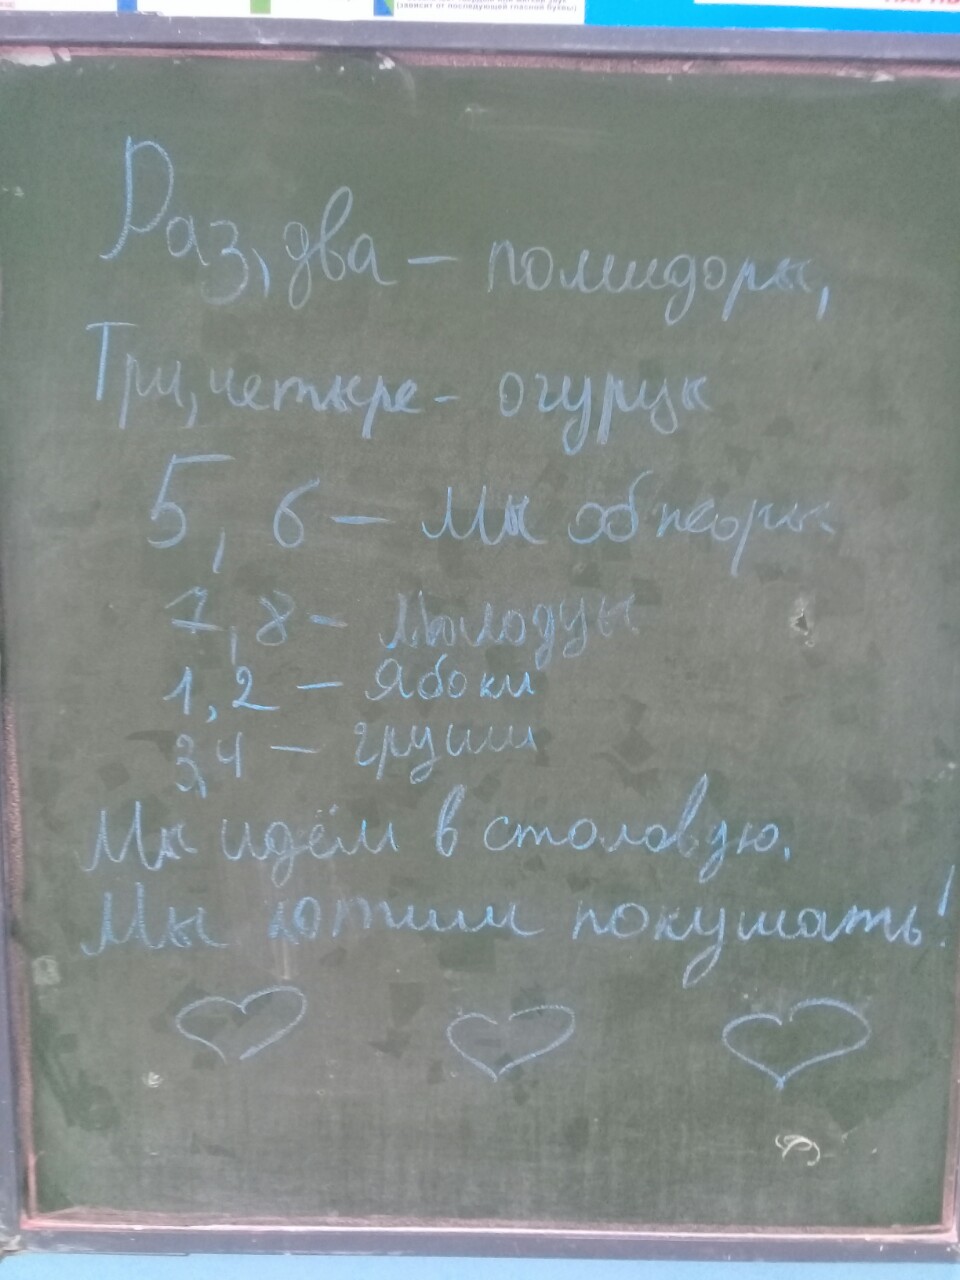 (зависит от последующей гласной буквы)
Раз, два — помидоры,
Три, четыре - огурцы
5, 6 — Мы обжоры
7, 8 — 
1, 2 — Ябоки
3,4 — груши
Мы идём в столовую.
Мы хотим покушать!